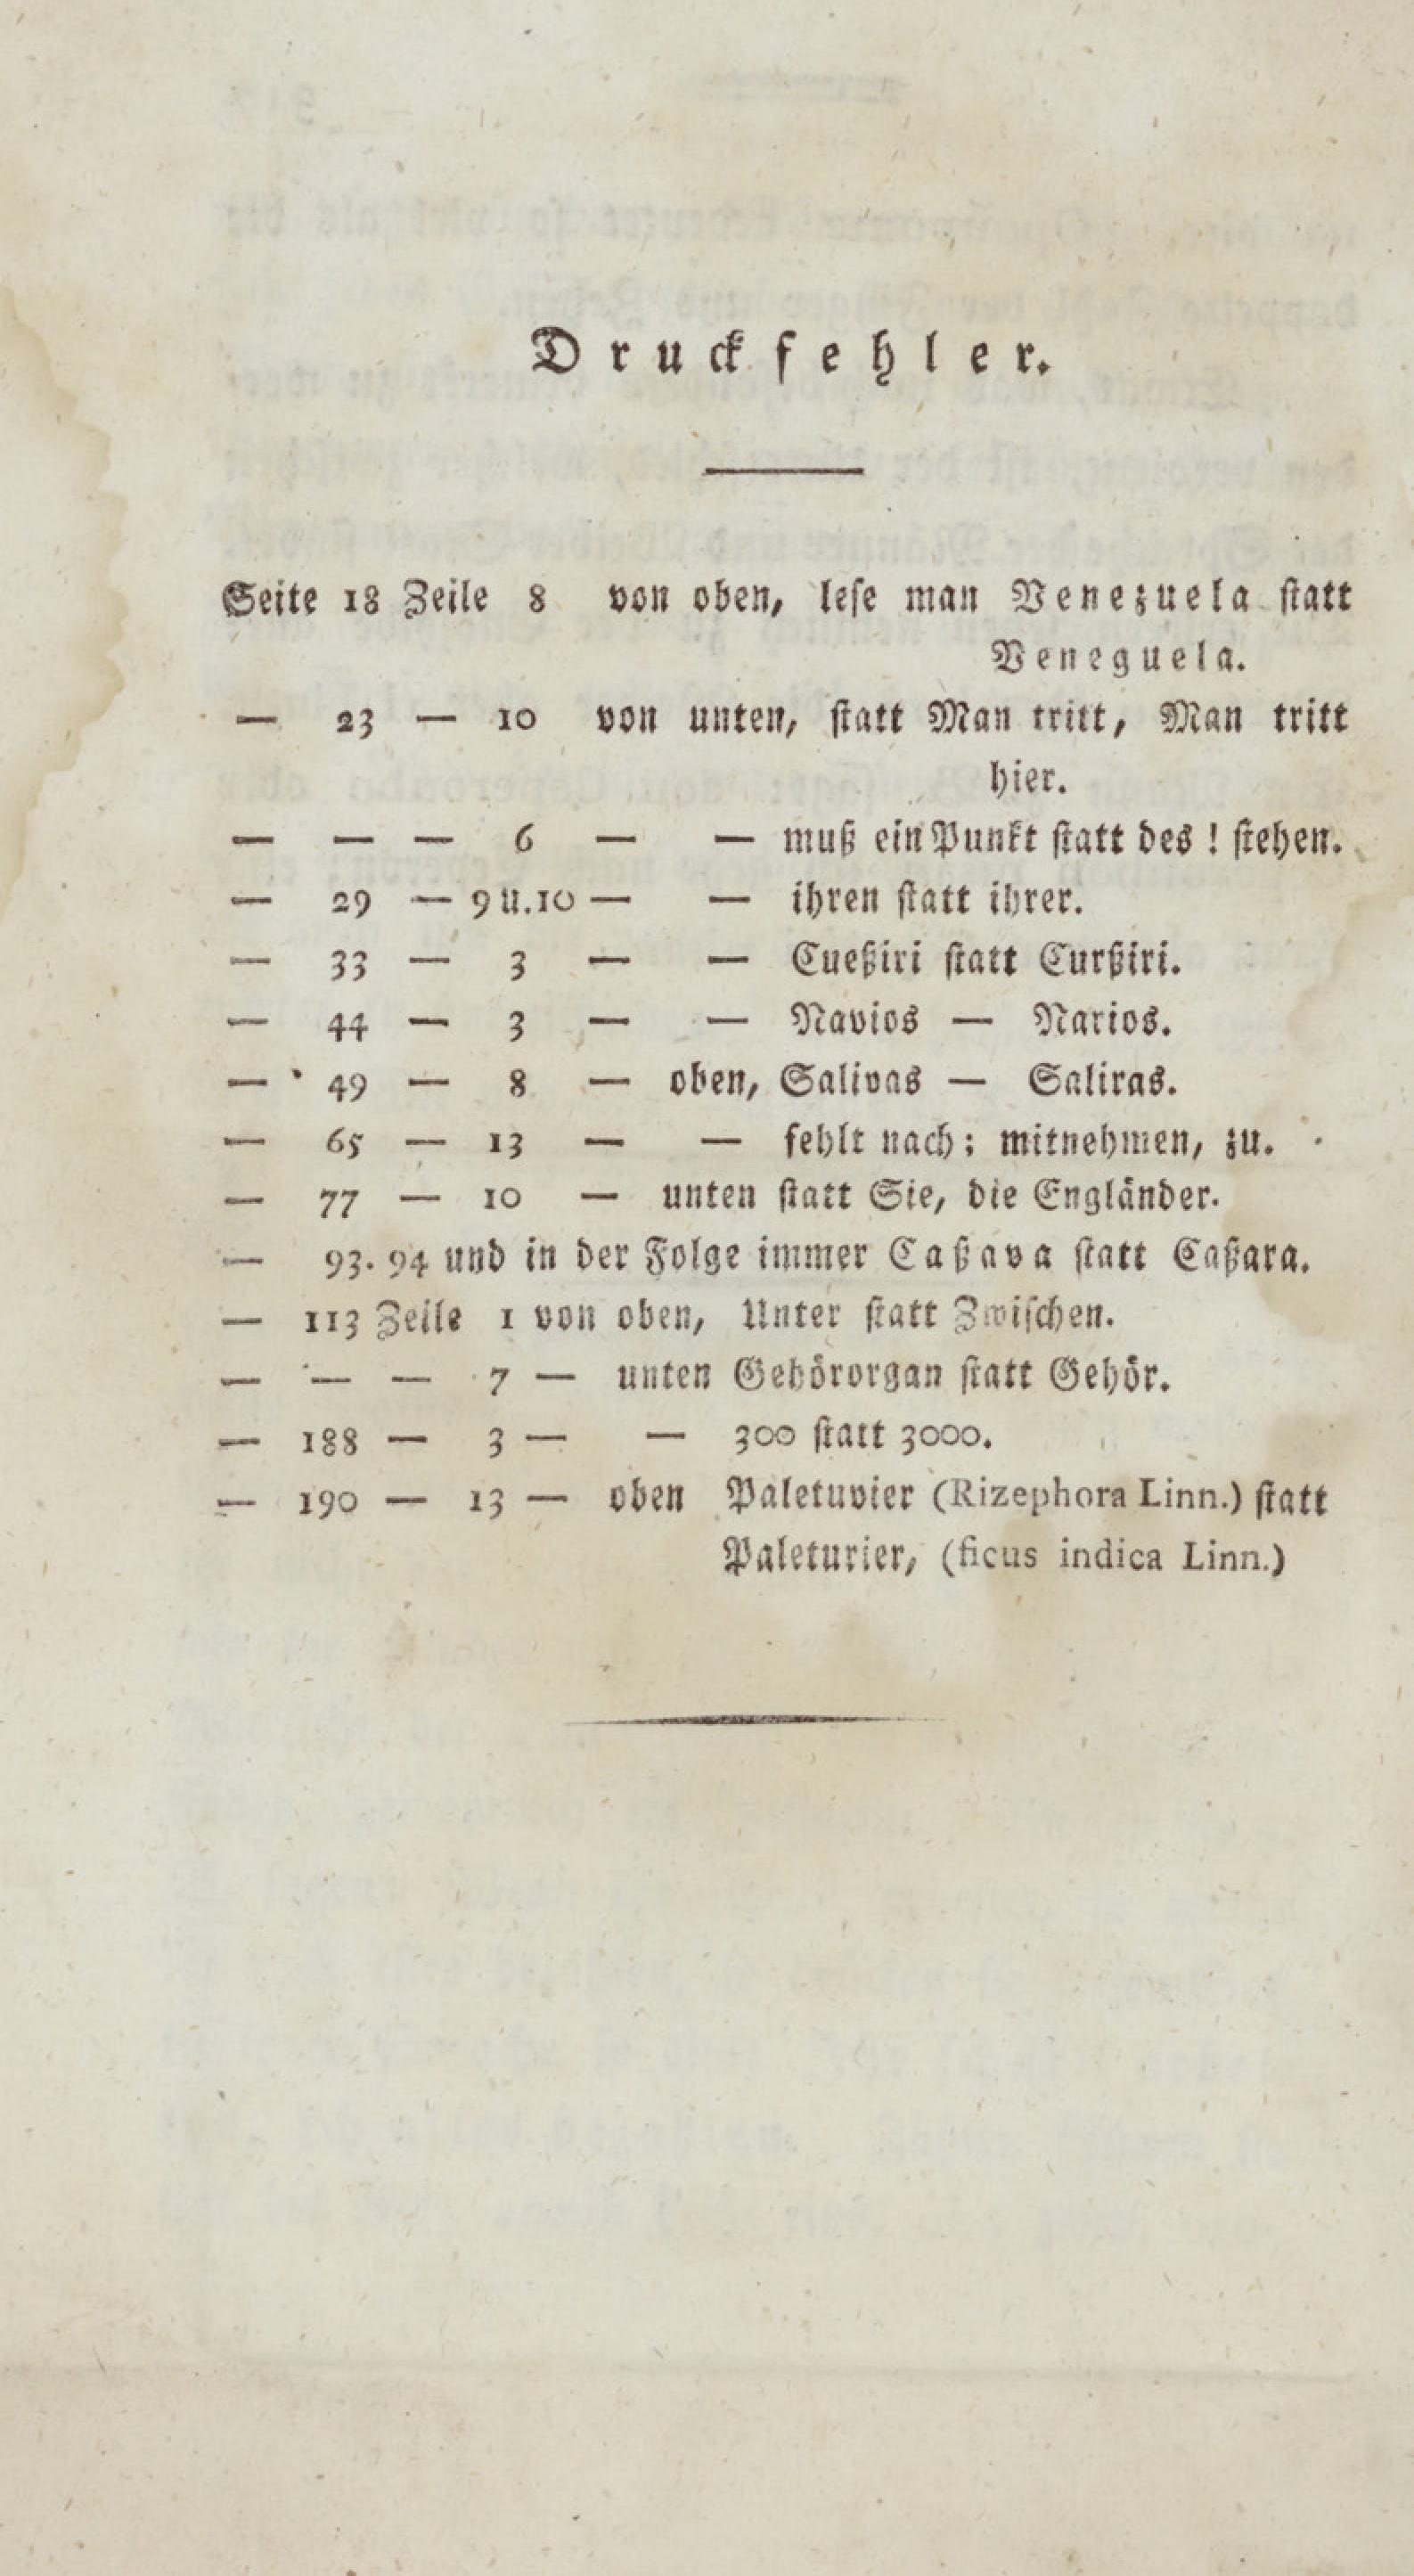 Druckfehler.
Seite 18 Zeile 8 von oben, leſe man Venezuela ſtatt
Veneguela.
— 23 — 10 von unten, ſtatt Man tritt, Man tritt
hier.
— — — 6 — — muß ein Punkt ſtatt des ! ſtehen.
— 29 — 9 u. 10 — — ihren ſtatt ihrer.
— 33 — 3 — — Cueßiri ſtatt Curßiri.
— 44 — 3 — — Navios — Narios.
— 49 — 8 — oben, Salivas — Saliras.
— 65 — 13 — — fehlt nach: mitnehmen, zu.
— 77 — 10 — unten ſtatt Sie, die Engländer.
— 93. 94 und in der Folge immer Caßava ſtatt Caßara.
— 113 Zeile 1 von oben, Unter ſtatt Zwiſchen.
— — — 7 — unten Gehörorgan ſtatt Gehör.
— 188 — 3 — — 300 ſtatt 3000.
— 190 — 13 — oben Paletuvier (Rizephora Linn.) ſtatt
Paleturier, (ficus indica Linn.)